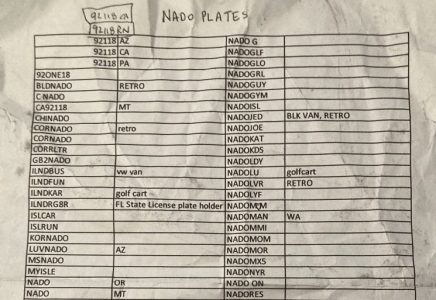 92118 CA NADO PLATES
92118 RN
92118 AZ NADO G
92118 CA NADOGLF
92118 PA NADOGLO
92ONE18 NADOGRL
BLDNADO RETRO NADOGUY
C NADO NADOGYM
CA92118 MT NADOISL
CHINADO NADOJED BLK VAN, RETRO
CORNADO retro NADOJOE
CORNADO NADOKAT
CORRLTR NADOKDS
GB2NADO NADOLDY
ILNDBUS vw van NADOLU golfcart
ILNDFUN NADOLVR RETRO
ILNDKAR golf cart NADOLYF
ILNDRG8R FL State License plate holder NADOMOM
ISLCAR NADOMAN WA
ISLRUN NADOMMI
KORNADO NADOMOM
LUVNADO AZ NADOMOR
MSNADO NADOMXS
MYISLE NADONYR
NADO OR NADO ON
NADO MT NADORES